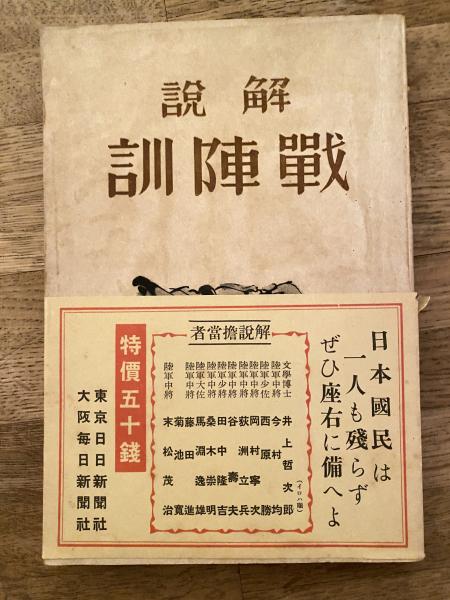 解說
戰陣訓
日本國民は
一人も殘らず
ぜひ座右に備へよ
解說擔當者
(イロハ順)
文學博士 井上哲次郎
陸軍中將 今村均
陸軍少佐 西原勝
陸軍中將 岡村寧次
陸軍中將 荻洲立兵
陸軍中將 谷壽夫
陸軍少將 田中隆吉
陸軍中將 桑木崇明
陸軍大佐 馬淵逸雄
陸軍中將 藤田進
菊池寬
陸軍中將 末松茂治
特價五十錢
東京日日新聞社
大阪每日新聞社